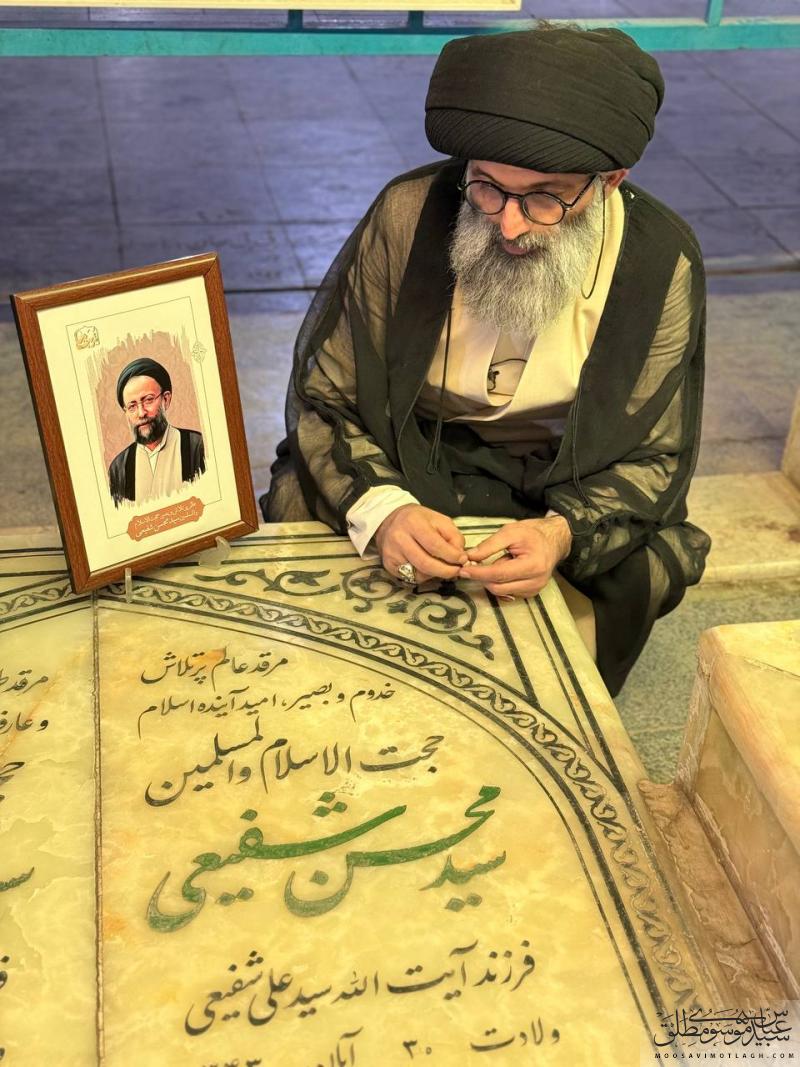 مرقد عالم پرتلاش
خدوم و بصیر، امید آینده اسلام
حجت الاسلام والمسلمین
سید محسن شفیعی
فرزند آیت الله سید علی شفیعی
ولادت ۳۰ آبان
و عارف
والمسلمین سید محسن شفیعی
سید عباس موسوی مطلق
MOOSAVIMOTLAGH.COM